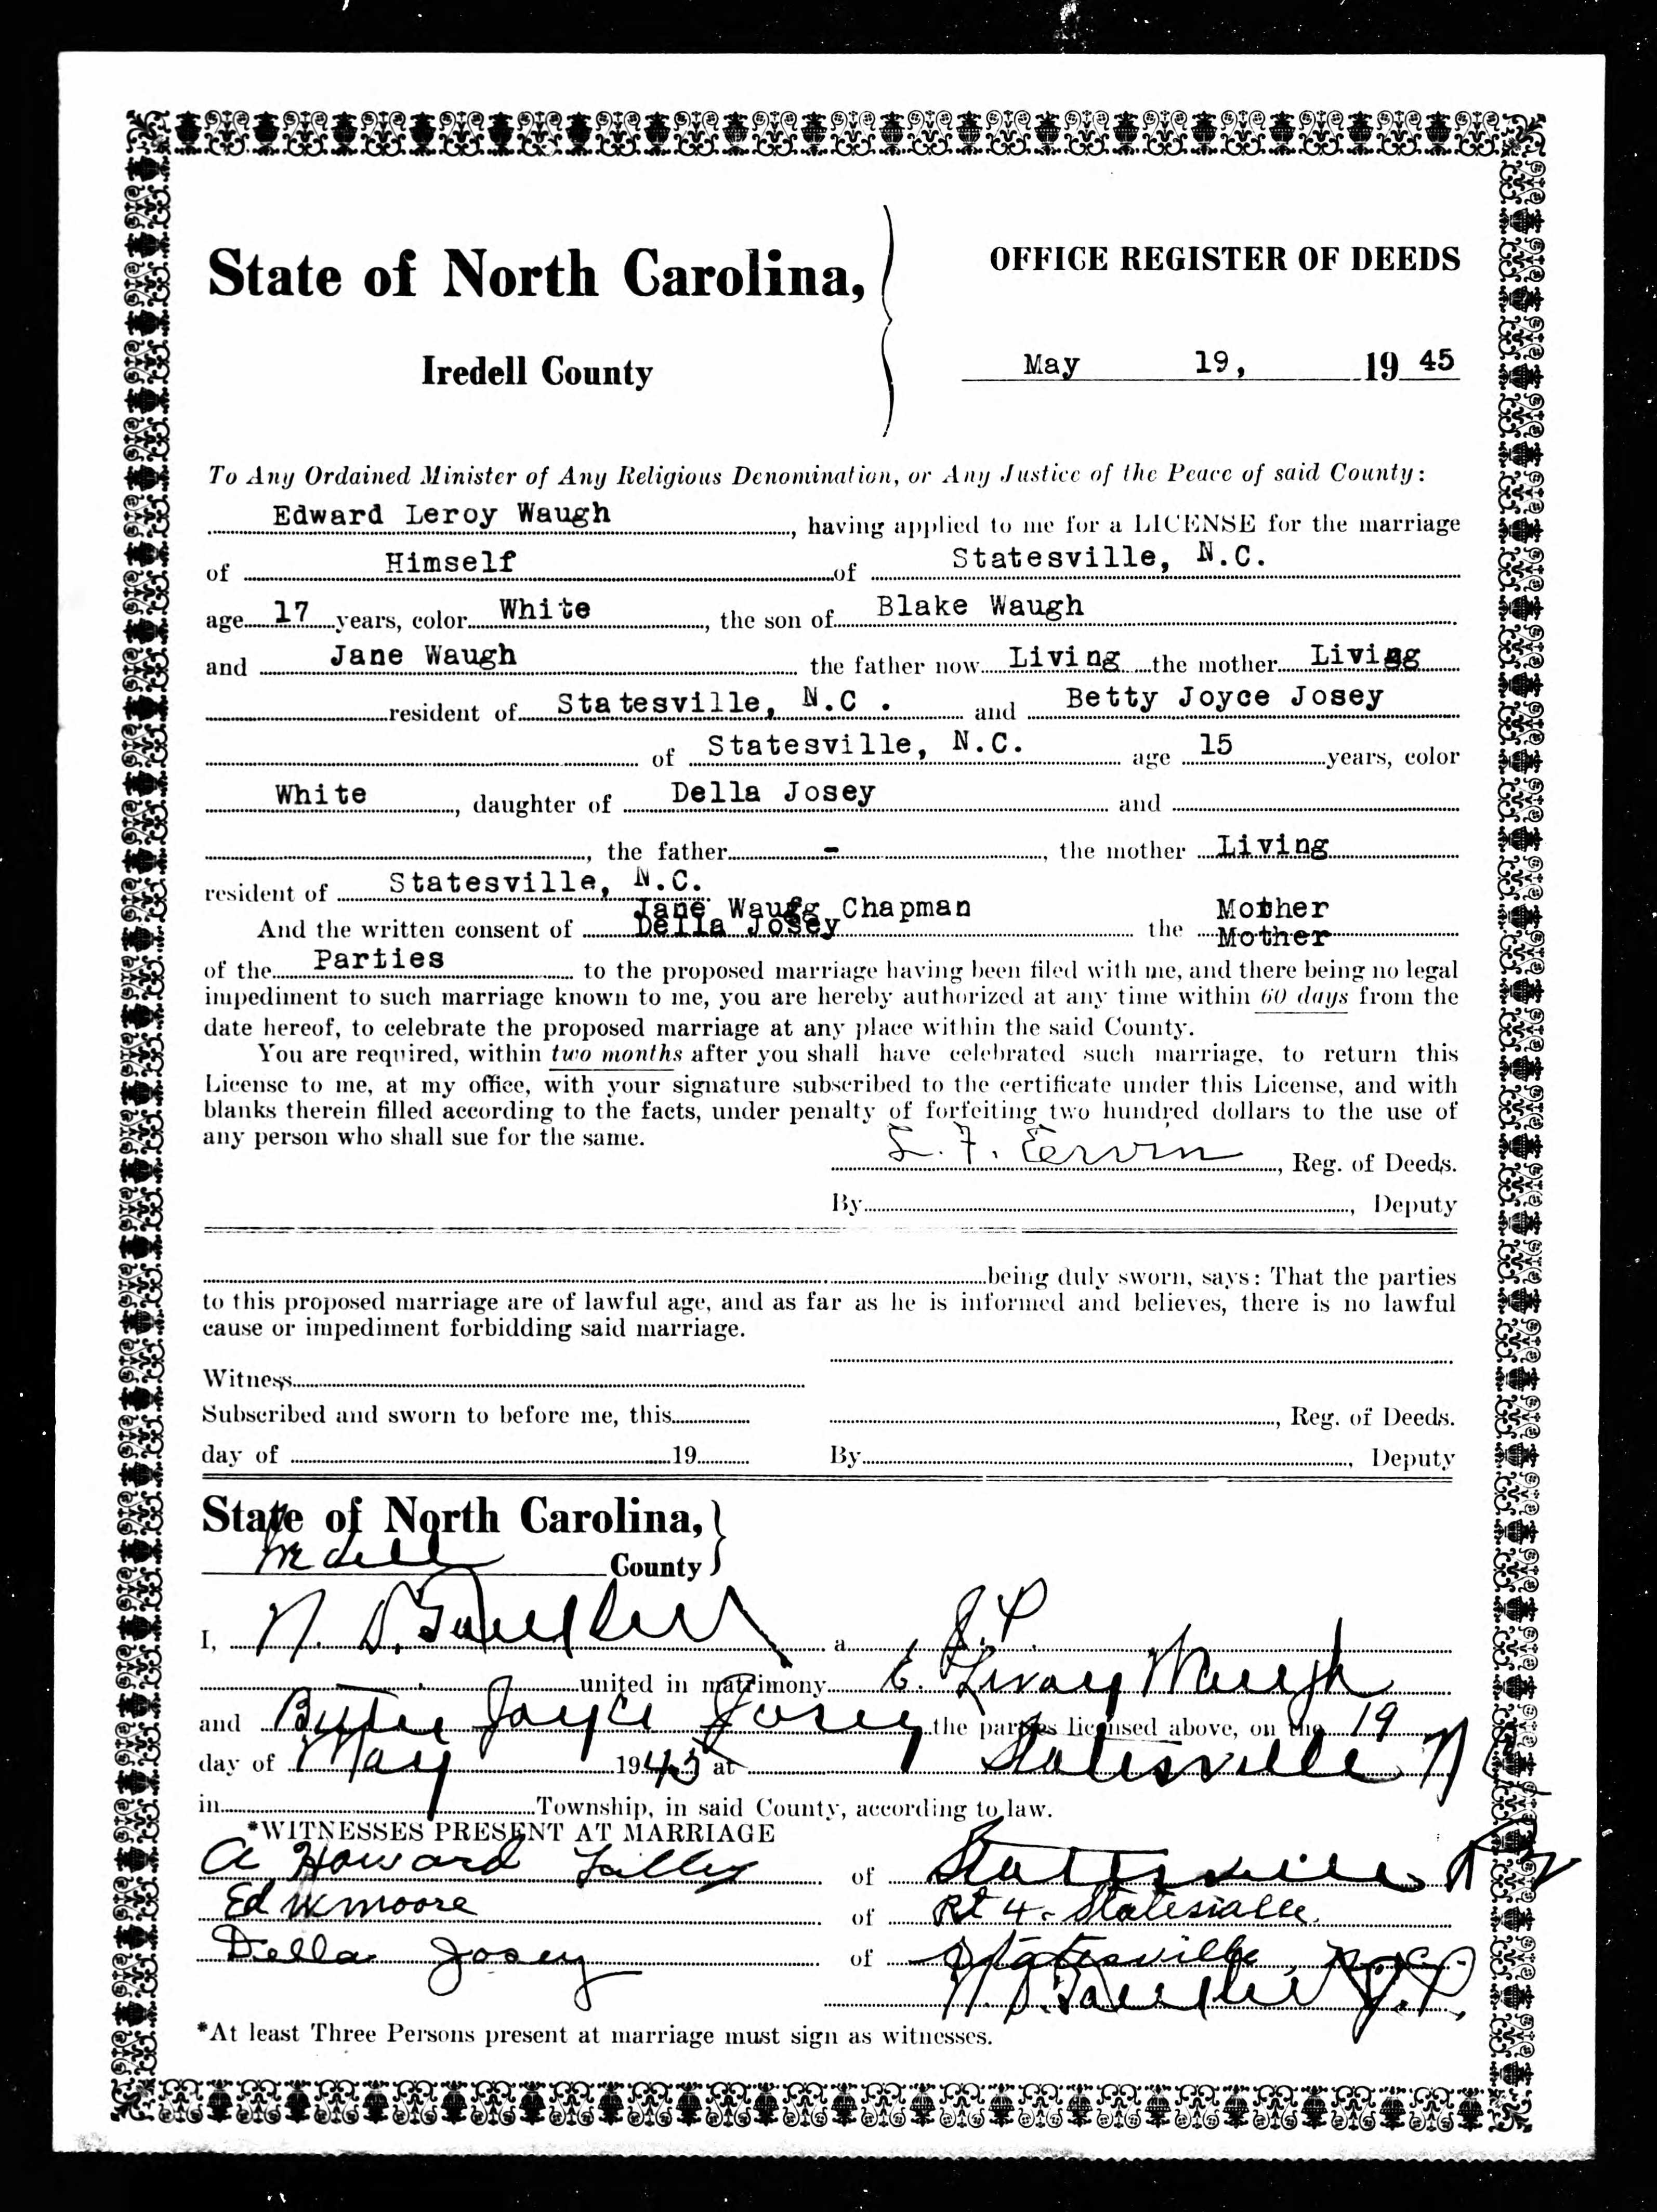 State of North Carolina,
Iredell County
OFFICE REGISTER OF DEEDS
May 19, 19 45
To Any Ordained Minister of Any Religious Denomination, or Any Justice of the Peace of said County:
Edward Leroy Waugh, having applied to me for a LICENSE for the marriage
of Himself of Statesville, N.C.
age 17 years, color White, the son of Blake Waugh
and Jane Waugh the father now Living the mother Living
resident of Statesville, N.C. and Betty Joyce Josey
of Statesville, N.C. age 15 years, color
White, daughter of Della Josey and
, the father -, the mother Living
resident of Statesville, N.C.
Jane Waugg Chapman Mother
And the written consent of Della Josey the Mother
of the Parties to the proposed marriage having been filed with me, and there being no legal
impediment to such marriage known to me, you are hereby authorized at any time within 60 days from the
date hereof, to celebrate the proposed marriage at any place within the said County.
You are required, within two months after you shall have celebrated such marriage, to return this
License to me, at my office, with your signature subscribed to the certificate under this License, and with
blanks therein filled according to the facts, under penalty of forfeiting two hundred dollars to the use of
any person who shall sue for the same.
L. F. Ervin, Reg. of Deeds.
By, Deputy
being duly sworn, says: That the parties
to this proposed marriage are of lawful age, and as far as he is informed and believes, there is no lawful
cause or impediment forbidding said marriage.
Witness
Subscribed and sworn to before me, this , Reg. of Deeds.
day of 19 By , Deputy
State of North Carolina,
Iredell County
I, N. D. a J.P.
united in matrimony E. Leroy Waugh
and Bettie Joyce Josey the parties licensed above, on the 19
day of May 1945 at Statesville N C
in Township, in said County, according to law.
*WITNESSES PRESENT AT MARRIAGE
A Howard of Statesville
Ed W Moore of Rt 4- Statesville
Della Josey of Statesville, N.C.
N. D. J.P.
*At least Three Persons present at marriage must sign as witnesses.